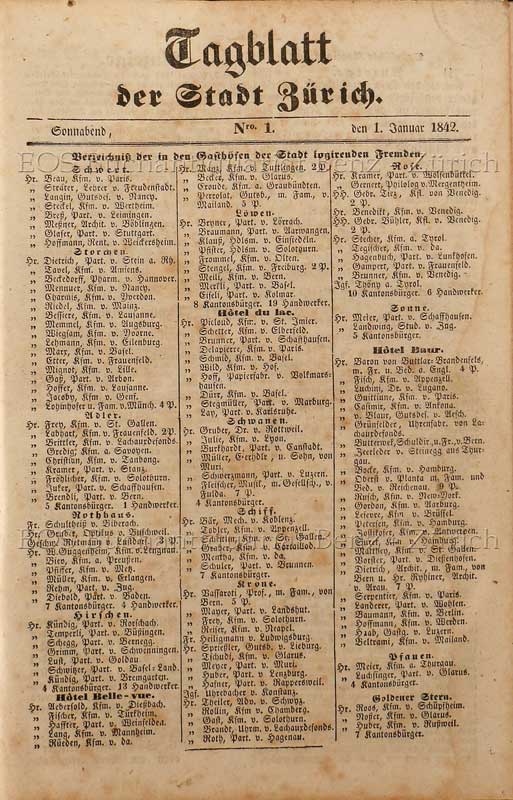 Tagblatt
der Stadt Zürich.
Sonnabend, Nro. 1. den 1. Januar 1842.
Verzeichniß der in den Gasthöfen der Stadt logirenden Fremden.
Schwert.
Hr. Beau, Kfm. v. Paris.
„ Sträter, Lehrer v. Freudenstadt.
„ Langin, Gutsbes. v. Nancy.
„ Steckel, Kfm. v. Wertheim.
„ Breß, Part. v. Leimingen.
„ Meßner, Archit. v. Böblingen.
„ Glaser, Part. v. Stuttgart.
„ Hoffmann, Rent. v. Weickersheim.
Storchen.
Hr. Dietrich, Part. v. Stein a. Rh.
„ Tavel, Kfm. v. Amiens.
„ Beckedorff, Pharm. v. Hannover.
„ Mennuer, Kfm. v. Nancy.
„ Charmis, Kfm. v. Yverdon.
„ Riedel, Kfm. v. Mainz.
„ Bessiere, Kfm. v. Lausanne.
„ Memmel, Kfm. v. Augsburg.
„ Wiegsam, Kfm. v. Voorne.
„ Lehmann, Kfm. v. Eilenburg.
„ Marx, Kfm. v. Basel.
„ Etter, Kfm. v. Frauenfeld.
„ Mignot, Kfm. v. Lille.
„ Gaß, Part. v. Arbon.
„ Hoffer, Kfm. v. Lausanne.
„ Jacoby, Kfm. v. Genf.
„ Fam. v. Münch. 4 P.
Adler.
Hr. Frey, Kfm. v. St. Gallen.
„ Labhart, Kfm. v. Frauenfeld. 2 P.
„ Brittler, Kfm. v. Lachauxdefonds.
„ Gredig; Kfm. a. Savoyen.
„ Christian, Kfm. v. Sanbong.
„ Kramer, Part. v. Stanz.
„ Fröhlicher, Kfm. v. Solothurn.
„ Juker, Part. v. Schaffhausen.
„ Brendli, Part. v. Bern.
5 Kantonsbürger. 1 Handwerker.
Rothhaus.
Fr. Schultheiß v. Biberach.
Hr. Gruber, v. Buchsweil.
Geschw. Rietmann v. Lustdorf. 3 P.
Hr. W. Guggenheim, Kfm. v. Lengnau.
„ Bleo, Kfm. a. Preußen.
„ Pfiffer, Kfm. v. Metz.
„ Müller, Kfm. v. Erlangen.
„ Rehm, Part. v. Zug.
„ Diebold, Part. v. Baden.
7 Kantonsbürger. 4 Handwerker.
Hirschen.
Hr. Kündig, Part. v. Rorschach.
„ Temperli, Part. v. Büsingen.
„ Schegg, Part. v. Bernegg.
„ Grimm, Part. v. Schwenningen.
„ Lust, Part. v. Goldau
„ Schwitzer, Part. v. Basel-Land.
„ Kündig, Part. v. Bremgarten.
4 Kantonsbürger. 13 Handwerker.
Hôtel Belle-vue.
Hr. Aebersold, Kfm. v. Dießbach.
„ Fischer, Kfm. v. Türkheim.
„ Haffter, Part. v. Weinfelden.
„ Lang, Kfm. v. Mannheim.
„ Rüeden, Kfm. v. da.
Hr. Münz, Kfm. v. Tuttlingen. 2 P.
„ Becker, Kfm. v. Glarus.
„ Croudt, Kfm. a. Graubündten.
„ Perrolat, Gutsb., m. Fam., v.
Mailand. 3 P.
Löwen.
Hr. Bryner, Part. v. Lörrach.
„ Braumann, Part. v. Aarwangen.
„ Klauß, Hdlsm. v. Einsiedeln.
„ Pfister, Hdlsm. v. Solothurn.
„ Frommel, Kfm. v. Olten.
„ Stengel, Kfm. v. Freiburg. 2 P.
„ Meili, Kfm. v. Bern.
„ Merkli, Part. v. Basel.
„ Eifeli, Part. v. Kolmar.
8 Kantonsbürger. 19 Handwerker.
Hôtel du lac.
Hr. Picloud, Kfm. v. St. Imier.
„ Schetter, Kfm. v. Elberfeld.
„ Brunner, Part. v. Schaffhausen.
„ Delapierre, Kfm. v. Paris.
„ Schmid, Kfm. v. Basel.
„ Wild, Kfm. v. Hof.
„ Hoff, Papierfabr. v. Volkmars-
hausen.
„ Dürr, Kfm. v. Basel.
„ Stegmüller, Part. v. Marburg.
„ Lay, Part. v. Karlsruhe.
Schwanen.
Hr. Gruber, Dr. v. Rottweil.
„ Julie, Kfm. v. Lyon.
„ Burkhardt, Part. v. Canstadt.
„ Müller, Gerbdlr., u. Sohn, von
Muri.
„ Schwarzmann, Part. v. Luzern.
„ Fleierz, Musik., m. Gesellsch., v.
Fulda. 7 P.
4 Kantonsbürger.
Schiff.
Hr. Bär, Mech. v. Koblenz.
„ Tobler, Kfm. v. Appenzell.
„ Scheitlin, Kfm. v. St. Gallen.
„ Graber, Kfm. v. Cortaillod.
„ Mertha, Kfm. v. da.
„ Schuler, Part. v. Brunnen.
7 Kantonsbürger.
Krone.
Hr. Vassaroti, Prof., m. Fam., von
Bern. 5 P.
„ Mayer, Part. v. Landshut.
„ Frey, Kfm. v. Solothurn.
„ Reiser, Kfm. v. Neapel.
Fr. Heiligmann v. Ludwigsburg
Hr. Sprießler, Gutsb. v. Lieburg
„ Tschudi, Kfm. v. Glarus.
„ Meyer, Part. v. Muri.
„ Huber, Part. v. Lenzburg.
„ Hafter, Part. v. Rapperswell.
Igf. Uhrebacher v. Konstanz.
Hr. Theiler, Adv. v. Schwyz.
„ Rollin, Kfm. v. Chamberg.
„ Gast, Kfm. v. Solothurn.
„ Brandt, Uhrm. v. Lachauxdefonds.
„ Roth, Part. v. Hagenau.
Rose.
Hr. Kramer, Part. v. Wolfenbüttel.
„ Gernert, Philolog v. Mergentheim.
HH. Gebr. Tschöp, Kfl. von Venedig.
2 P.
Hr. Benedikt, Kfm. v. Venedig.
HH. Gebr. Bühler, Kfl. v. Venedig.
2 P.
Hr. Stecher, Kfm. a. Tyrol.
„ Tegischer, Kfm. v. da.
„ Hagenbuch, Part. v. Lunkhofen.
„ Gampert, Part. v. Frauenfeld.
„ Brunner, Kfm. v. Venedig.
Igf. Thöny a. Tyrol.
10 Kantonsbürger. 6 Handwerker.
Sonne.
Hr. Meier, Part. v. Schaffhausen.
„ Landwing, Stud. v. Zug.
5 Kantonsbürger.
Hôtel Baur.
Hr. Baron von Buttlar-Brandenfels,
m. Fr. u. Bed. a. Engl. 4 P.
„ Fisch, Kfm. v. Appenzell.
„ Luchini, Dr. v. Lugano.
„ Guittiune, Kfm. v. Paris.
„ Casimir, Kfm. v. Ankona.
„ v. Blarer, Gutsbes. v. Aesch.
„ Grünfelder, Uhrenfabr. von La-
chauxdefonds.
„ Butterneß, Schuldir., u. Fr., v. Bern.
„ Zeerleder v. Steinegg aus Thur-
gau.
„ Boese, Kfm. v. Hamburg.
„ Oberst v. Planta m. Fam. und
Bed. v. Reichenau. 9 P.
„ Rusch, Kfm. v. New-York.
„ Gordon, Kfm. v. Havre.
„ Leleyer, Kfm. v. Brüssel.
„ Petersen, Kfm. v. Hamburg.
„ Joostischer, Kfm. v. Antwerpen.
„ Goll, Kfm. v. Frankfurt.
„ Matthey, Kfm. v. St. Gallen.
„ Vorster, Part. v. Dießenhofen.
„ Dietrich, Archit., m. Fam., von
Bern u. Hr. Rychner, Archit.
v. Arau. 7 P.
„ Serpentier, Kfm. v. Paris.
„ Landerer, Part. v. Wohlen.
„ Baumann, Kfm. v. Berlin.
„ Hoffmann, Kfm. v. Werden.
„ Haab, Gastg. v. Luzern.
„ Beltrami, Kfm. v. Mailand.
Pfauen.
Hr. Meier, Kfm. a. Thurgau.
„ Luchsinger, Part. v. Glarus.
4 Kantonsbürger.
Goldener Stern.
Hr. Roos, Kfm. v. Schüpfheim.
„ Noser, Kfm. v. Glarus.
„ Huber, Kfm. v. Rußweil.
7 Kantonsbürger.